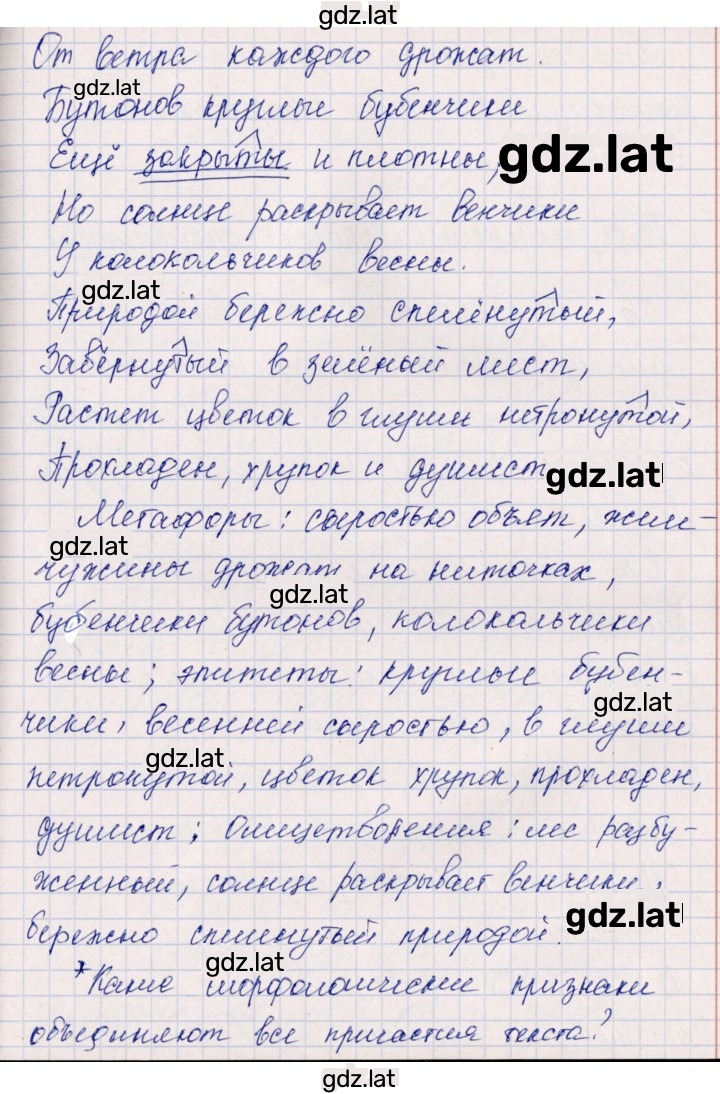 gdz.lat
От ветра каждого дрожат.
gdz.lat
Бутонов круглые бубенчики
Ещё закрыты и плотны,
gdz.lat
Но солнце раскрывает венчики
У колокольчиков весны.
gdz.lat
Природой бережно спелёнутый,
Завёрнутый в зелёный лист,
Растет цветок в глуши нетронутой,
Прохладен, хрупок и душист
gdz.lat
Метафоры: сыростью объят, жем-
gdz.lat
чужины дрожат на ниточках,
gdz.lat
бубенчики бутонов, колокольчики
весны; эпитеты: круглые бубен-
gdz.lat
чики, весенней сыростью, в глуши
gdz.lat
нетронутой, цветок хрупок, прохладен,
душист; олицетворения: лес разбу-
женный, солнце раскрывает венчики,
gdz.lat
бережно спеленутый природой.
gdz.lat
*Какие морфологические признаки
объединяют все причастия текста?
gdz.lat